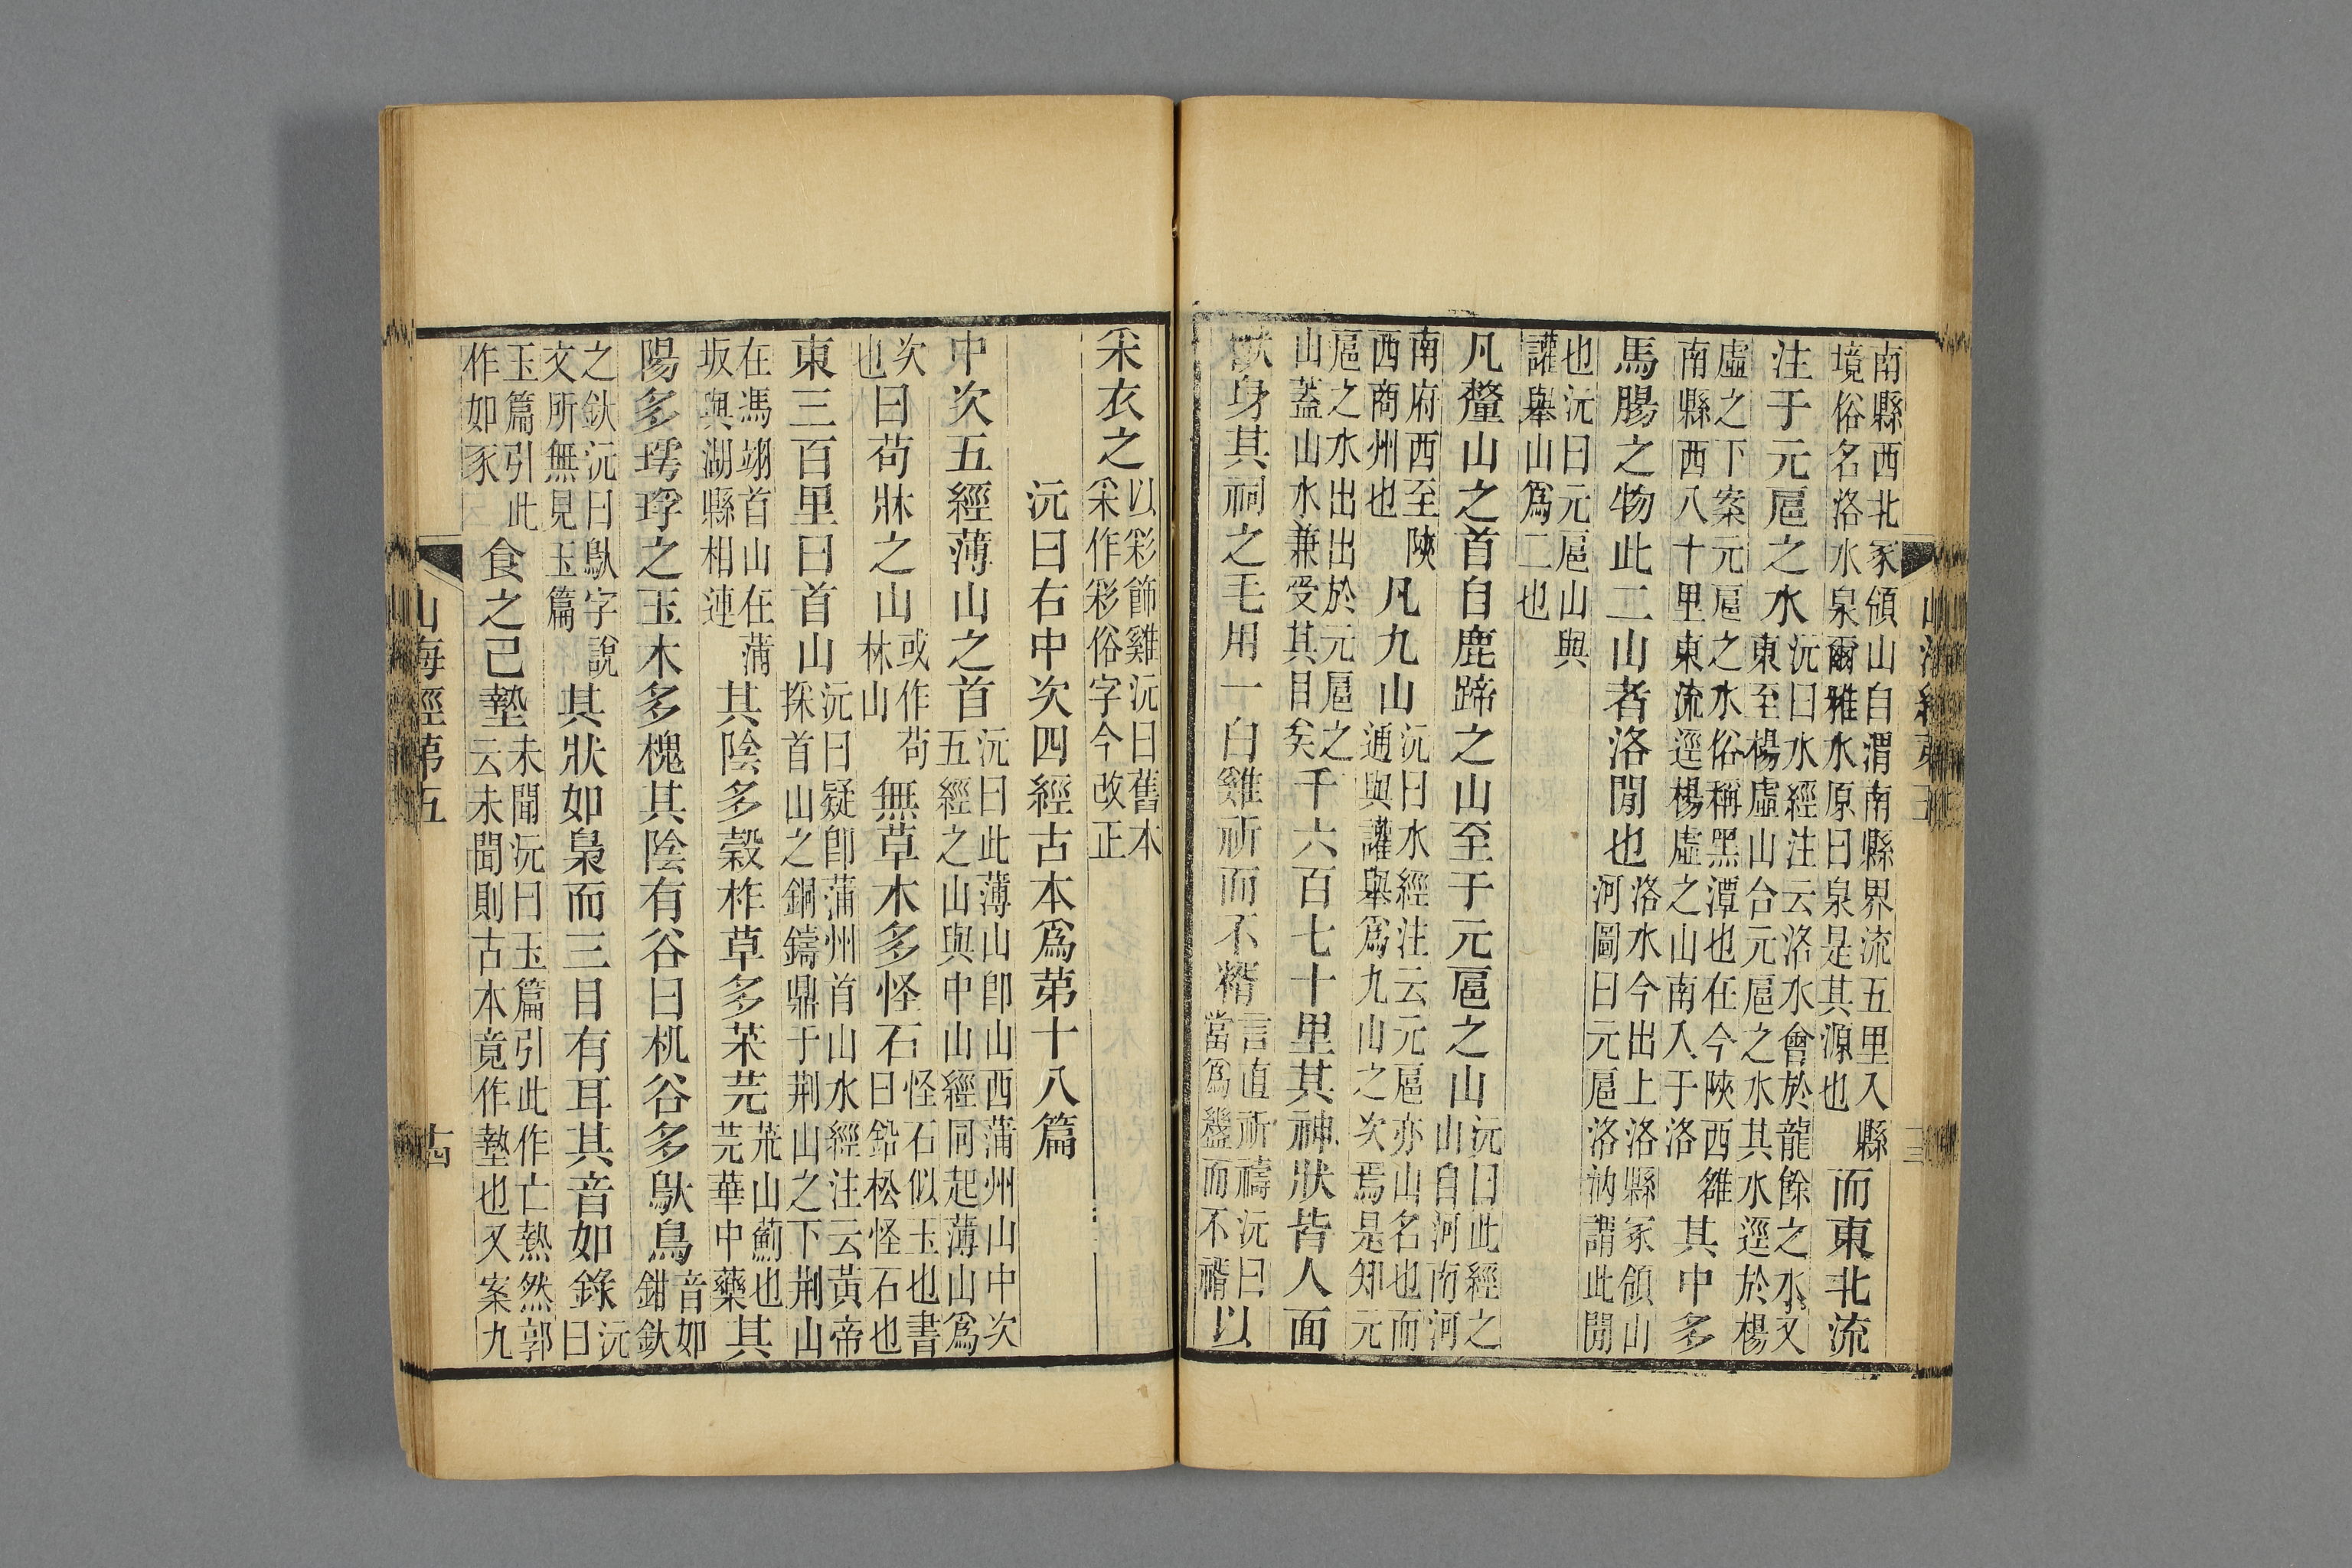 南縣西北冢領山自渭南縣界流五里入縣境俗名洛水泉爾雅水原曰泉是其源也而東北流
注于元扈之水沅曰水經注云洛水會於龍餘之水又東至楊虛山合元扈之水其水逕於楊
虛之下案元扈之水俗稱黑潭也在今陝西雒南縣西八十里東流逕楊虛之山南入于洛其中多
馬腸之物此二山者洛閒也洛水今出上洛縣冢領山河圖曰元扈洛汭謂此閒
也沅曰元扈山與讙舉山爲二也
凡釐山之首自鹿蹄之山至于元扈之山沅曰此經之山自河南河
南府西至陝西商州也凡九山沅曰水經注云元扈亦山名也而通與讙舉爲九山之次焉是知元
扈之水出出於元扈之山蓋山水兼受其目矣千六百七十里其神狀皆人面
獸身其祠之毛用一白雞祈而不糈言直祈禱沅曰當爲而不糈以
采衣之以彩飾雞沅曰舊本采作彩俗字今改正
沅曰右中次四經古本爲第十八篇
中次五經薄山之首沅曰此薄山卽山西蒲州山中次五經之山與中山經同起薄山爲
次也曰苟牀之山或作苟林山無草木多怪石怪石似玉也書曰鉛松怪石也
東三百里曰首山沅曰疑卽蒲州首山水經注云黃帝採首山之銅鑄鼎于荆山之下荆山
在馮翊首山在蒲坂與湖縣相連其陰多榖柞草多茱芫荒山薊也芫華中藥其
陽多㻬琈之玉木多槐其陰有谷曰机谷多䳅鳥音如鉗釱
之釱沅曰䳅字說文所無見玉篇其狀如梟而三目有耳其音如錄沅曰
玉篇引此作如豕食之已墊未聞沅曰玉篇引此作亡熱然郭云未聞則古本竟作墊也又案九
山海經第五 十四